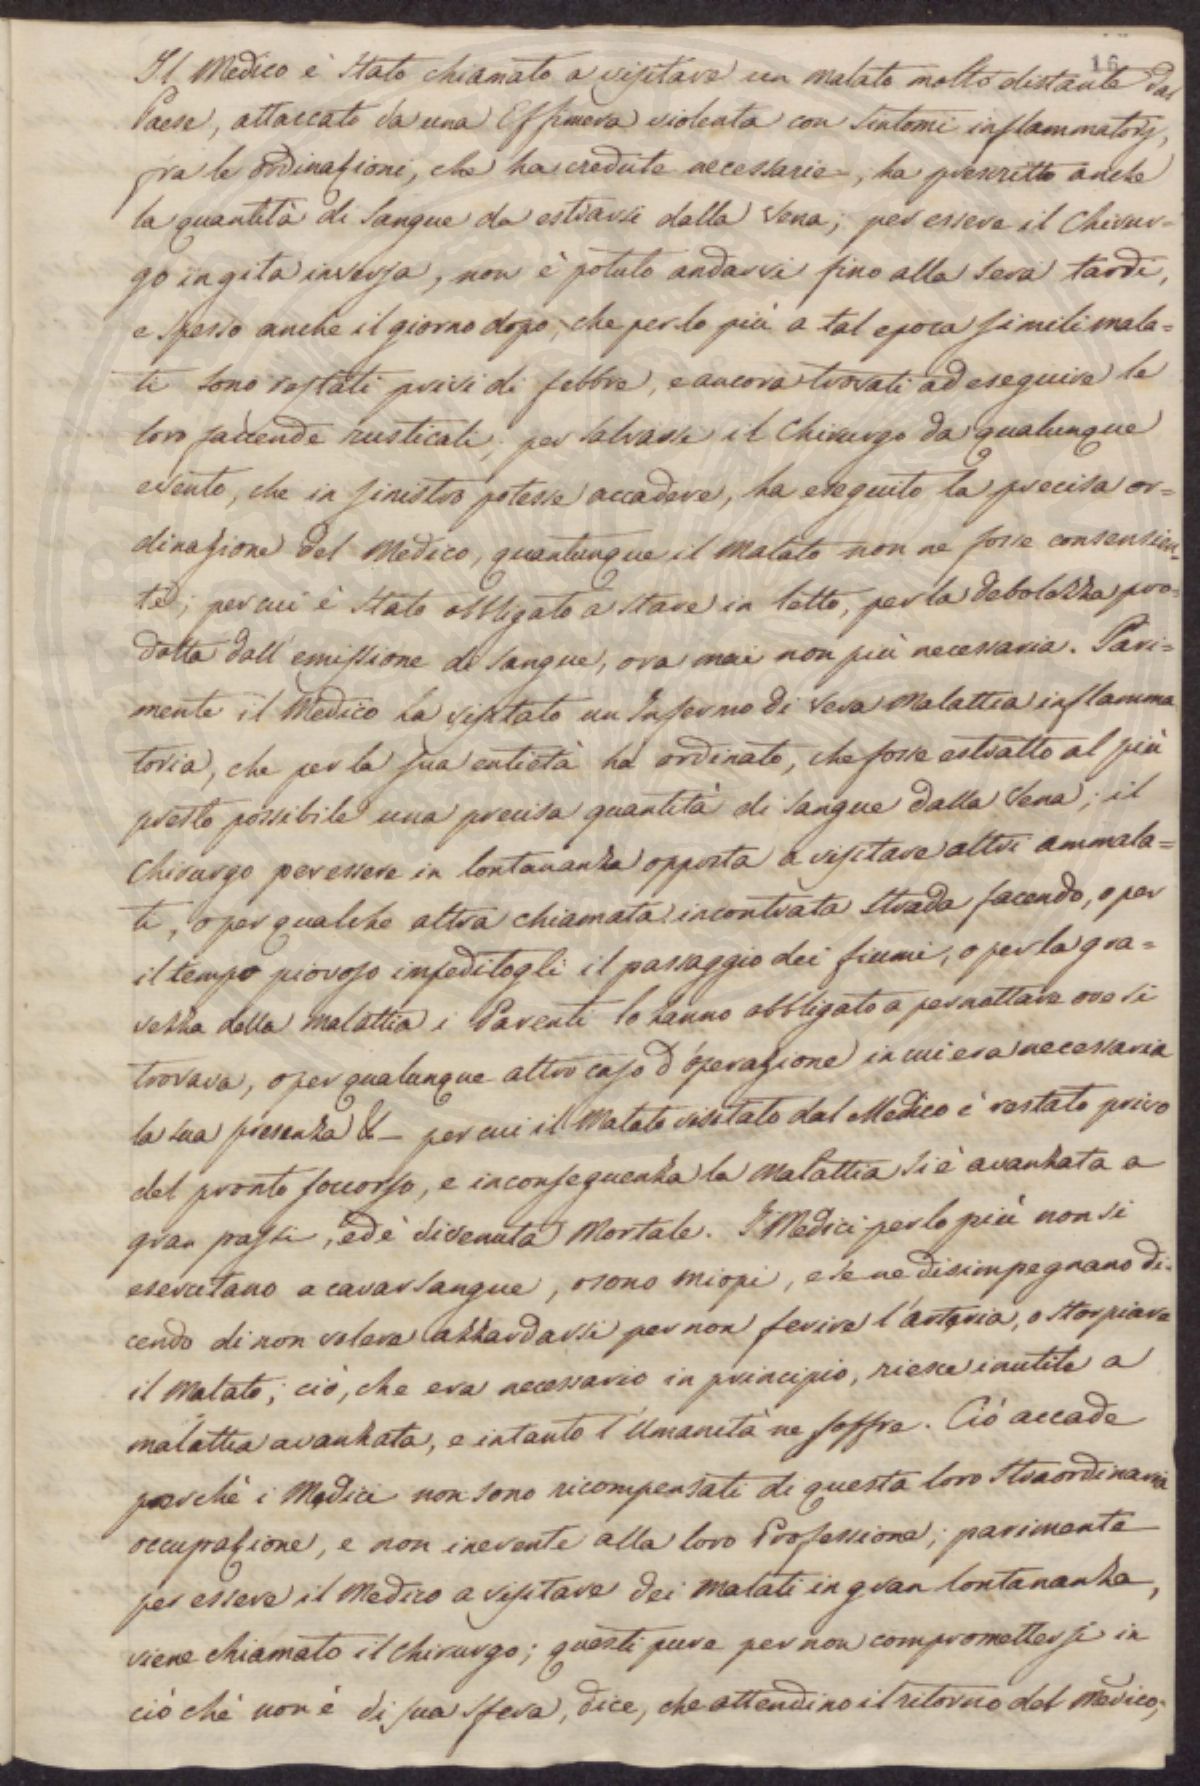 16
Il Medico è stato chiamato a visitare un malato molto distante dal
Paese, attaccato da una Effimera violenta con sintomi inflammatorj,
fra le ordinazioni, che ha credute necessarie, ha prescritto anche
la quantità di sangue da estrarsi dalla vena; per essere il Chirur=
go in gita inversa, non è potuto andarvi fino alla sera tardi,
e spesso anche il giorno dopo, che per lo più a tal epoca simili mala=
ti sono restati privi di febbre, e ancora trovati ad eseguire le
loro faccende rusticali; per salvarsi il Chirurgo da qualunque
evento, che in sinistro potesse accadere, ha eseguito la precisa or=
dinazione del Medico, quantunque il malato non ne fosse consensien=
te; per cui è stato obbligato a stare in letto, per la debolezza pro=
dotta dall'emissione di sangue, ora mai non più necessaria. Pari=
mente il Medico ha visitato un Infermo di vera malattia inflamma
toria, che per la sua entietà ha ordinato, che fosse estratto al più
presto possibile una precisa quantità di sangue dalla vena; il
Chirurgo per essere in lontananza opposta a visitare altri ammala=
ti, o per qualche altra chiamata incontrata strada facendo, o per
il tempo piovoso impeditogli il passaggio dei fiumi, o per la gra=
vezza della malattia i Parenti lo hanno obbligato a pernottare ove si
trovava, o per qualunque altro caso d'operazione in cui era necessaria
la sua presenza &– per cui il Malato visitato dal Medico è restato privo
del pronto soccorso, e in conseguenza la malattia si è avanzata a
gran passi, ed è divenuta mortale. I Medici per lo più non si
esercitano a cavar sangue, o sono miopi, e se ne disimpegnano di=
cendo di non volere azzardarsi per non ferire l'arteria, o storpiare
il malato; ciò, che era necessario in principio, riesce inutile a
malattia avanzata, e intanto l'Umanità ne soffre. Ciò accade
perchè i Medici non sono ricompensati di questa loro straordinaria
occupazione, e non inerente alla loro Professione; parimente
per essere il Medico a visitare dei malati in gran lontananza,
viene chiamato il Chirurgo; questi pure per non compromettersi in
ciò che non è di sua sfera, dice, che attendino il ritorno del Medico;